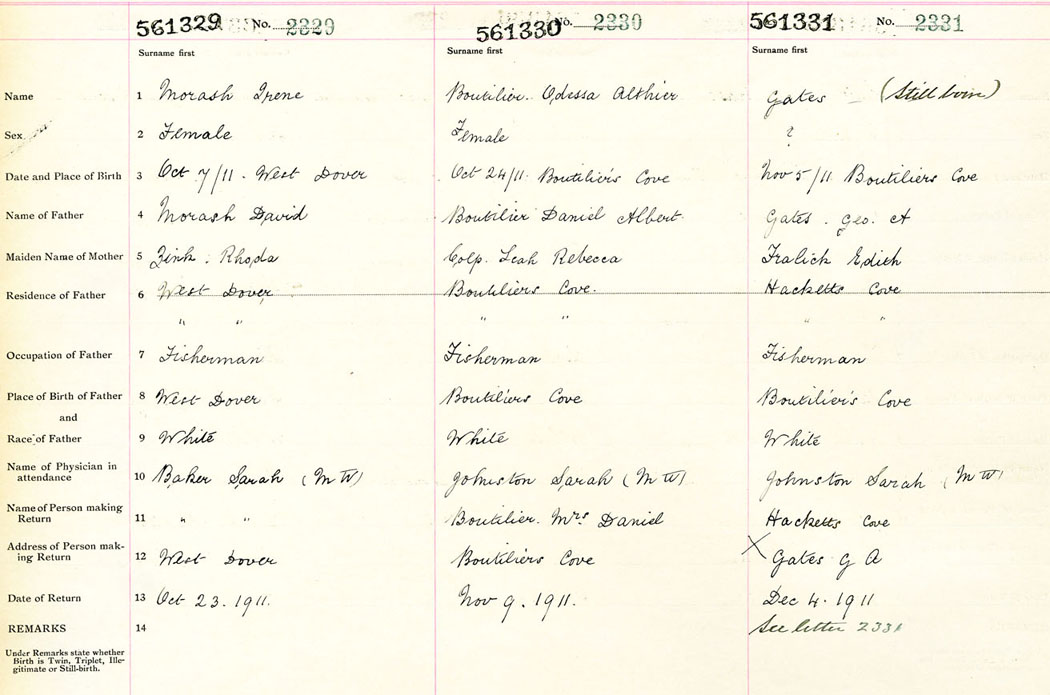 561329 No. 2329 561330 No. 2330 561331 No. 2331
Surname first Surname first Surname first
Name 1 Morash Irene Boutilier. Odessa Althier Gates - (Still born)
Sex 2 Female Female ?
Date and Place of Birth 3 Oct 7/11. West Dover Oct 24/11. Boutilier's Cove Nov 5/11 Boutiliers Cove
Name of Father 4 Morash David Boutilier Daniel Albert. Gates. Geo. A
Maiden Name of Mother 5 Zink. Rhoda Colp. Leah Rebecca Fralick Edith
Residence of Father 6 West Dover Boutiliers Cove. Hacketts Cove
" " " " " "
Occupation of Father 7 Fisherman Fisherman Fisherman
Place of Birth of Father 8 West Dover Boutiliers Cove Boutilier's Cove
and
Race of Father 9 White White White
Name of Physician in
attendance 10 Baker Sarah (M W) Johnston Sarah (M W) Johnston Sarah (M W)
Name of Person making
Return 11 " " Boutilier. Mrs Daniel Hacketts Cove
Address of Person mak-
ing Return 12 West Dover Boutiliers Cove X Gates G A
Date of Return 13 Oct 23. 1911. Nov 9. 1911. Dec 4. 1911
REMARKS 14 See letter 2331
Under Remarks state whether
Birth is Twin, Triplet, Ille-
gitimate or Still-birth.